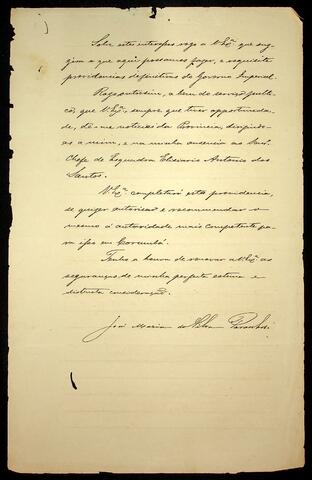 Sobre estes entrefos rogo a V. Exª que suy
jem a que aqui possamos fazer, e requisite
providencias definitivas do Governo Imperial.
Rogo outrosim, a bem do serviço publi-
co, que V. Exª, sempre que tiver opportunida-
de, dê-me noticias da Provincia, dirigidas
a mim, e na minha ausencia ao Snr.
Chefe de Esquadra Elisiario Antonio dos
Santos.
V. Exª completará esta providencia,
se quizer autorisar e recommendar o
mesmo á autoridade mais competente pa-
ra isso em Corumbá.
Tenho a honra de renovar a V. Exª as
seguranças de minha perfeita estima e
distincta consideração.
José Maria da Silva Paranhos.